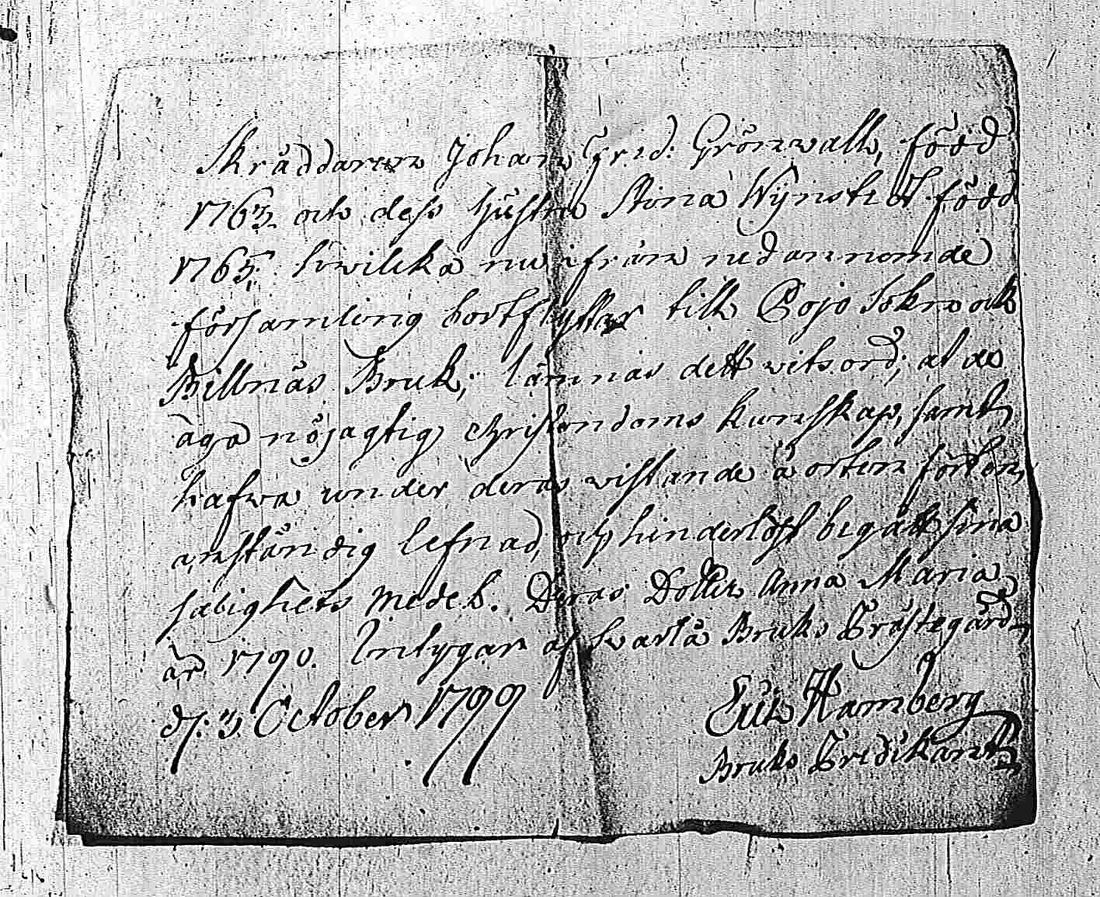 Skräddaren Johan Fred: Grönwall, född
1763. och dess hustru Stina Wijnstedt född
1765, hwilcka nu ifrån nedannemde
församling bortflyttar till Pojo Sokn och
Billnäs Bruk, lämnas dett vitsord, at de
äga nöjagtig Christendoms kunskap, samt
hafwa under deras vistande å orten fört en
anständig lefnad, och hinderlöst begått sina
salighets medel. Deras Dotter Anna Maria
är 1790. Intygar af Svartå Bruks Prästegård
d. 3. October 1799
Eric Hamberg
Bruks Predikant